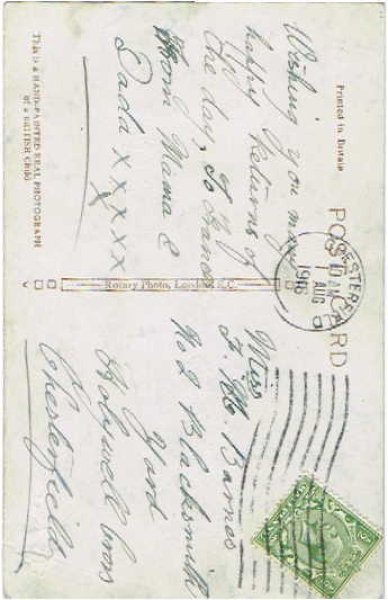 Printed in Britain
POST CARD
CHESTERFIELD
1 AM
AUG
1916
Wishing you many
happy Returns of
the day, to
From Mama &
Dada X X X X X
X
This is a HAND-PAINTED REAL PHOTOGRAPH
of a BRITISH
Rotary Photo, London, E.C.
Miss
F. M. Barnes
No 2 Blacksmith
Yard
Holywell Cross
Chesterfield